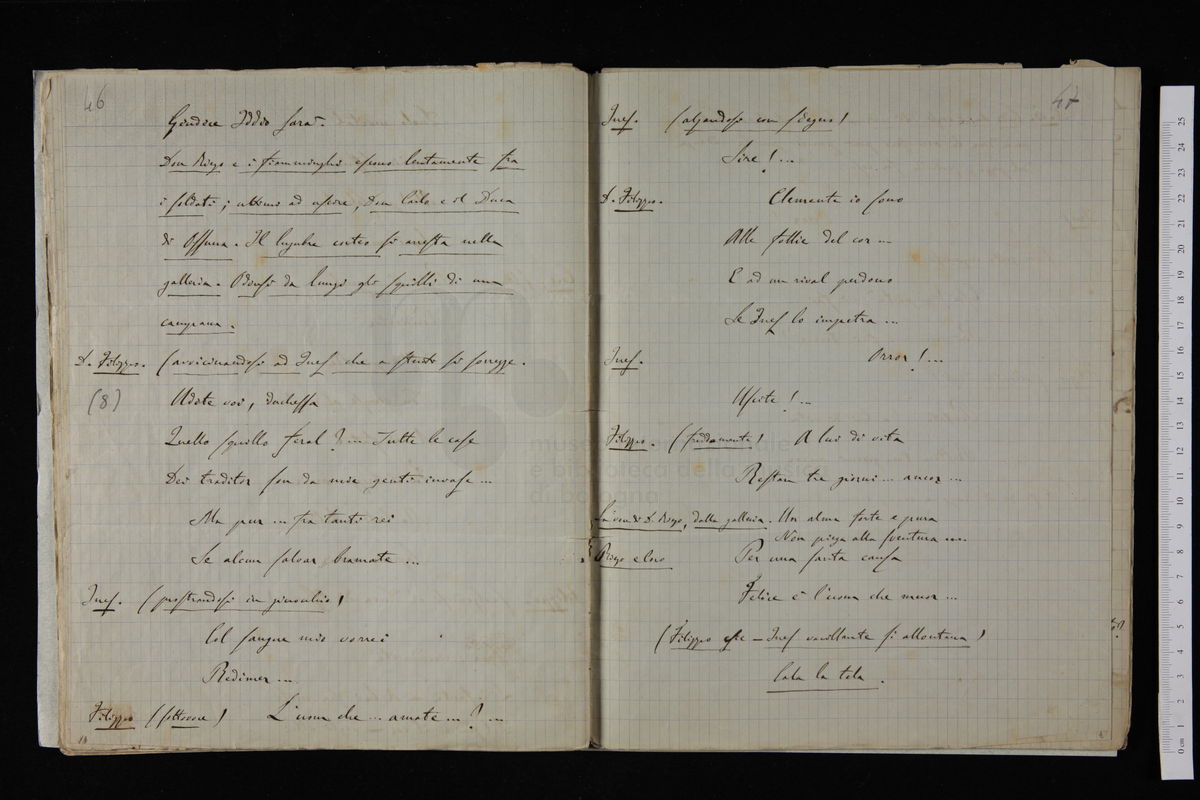 46
Giudice Iddio sarà.
Don Diego e i fiamminghi escono lentamente fra
i soldati; ultimi ad uscire, Don Carlo e il Duca
di Ossuna. Il lugubre corteo si arresta nella
galleria. Odonsi da lungi gli squilli di una
campana.
D. Filippo. (avvicinandosi ad Ines che a stento si sorregge.
(8) Udite voi, duchessa
Quello squillo feral? ... Tutte le case
Dei traditor son da mie genti invase ...
Ma pur ... fra tanti rei
Se alcun salvar bramate ...
Ines. (prostrandosi in ginocchio)
Col sangue mio vorrei
Redimer ...
Filippo (sottovoce) L'uom che ... amate ... ? ...
47
Ines. (alzandosi con sdegno)
Sire! ...
D. Filippo. Clemente io sono
Alle follie del cor ...
E ad un rival perdono
Se Ines lo impetra ...
Ines. Orror! ...
Uscite! ...
Filippo. (freddamente) A lui di vita
Restan tre giorni ... ancor ...
La voce di D. Diego, dalla galleria. Un alma forte e pura
Non piega alla sventura ....
Diego e Coro Per una santa causa
Felice è l'uom che muor ...
(Filippo esce – Ines vacillante si allontana)
Cala la tela.
0 cm 1 2 3 4 5 6 7 8 9 10 11 12 13 14 15 16 17 18 19 20 21 22 23 24 25